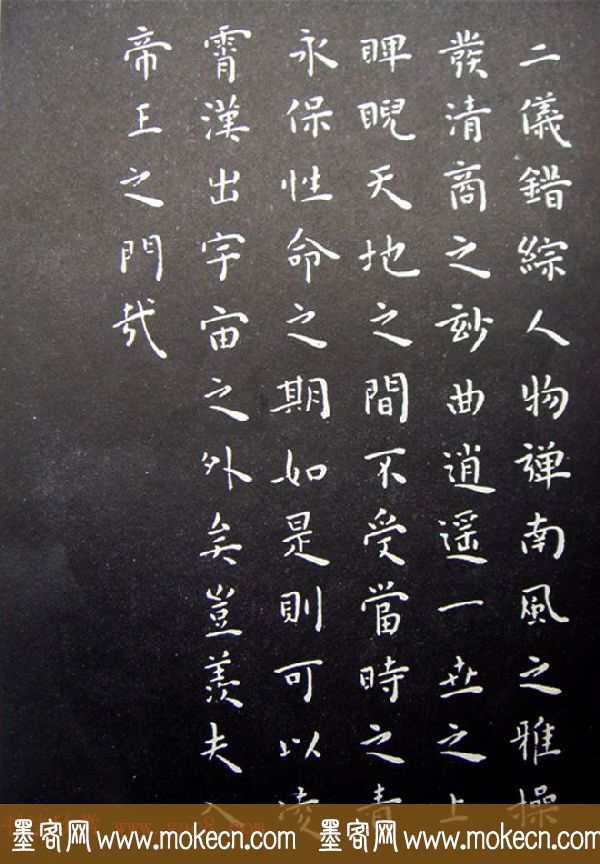 二儀錯綜人物彈南風之雅操
發清商之玅曲逍遥一世之上
睥睨天地之間不受當時之責
永保性命之期如是則可以凌
霄漢出宇宙之外矣豈羨夫入
帝王之門哉
墨客网www.mokecn.com 墨客网www.mokecn.com